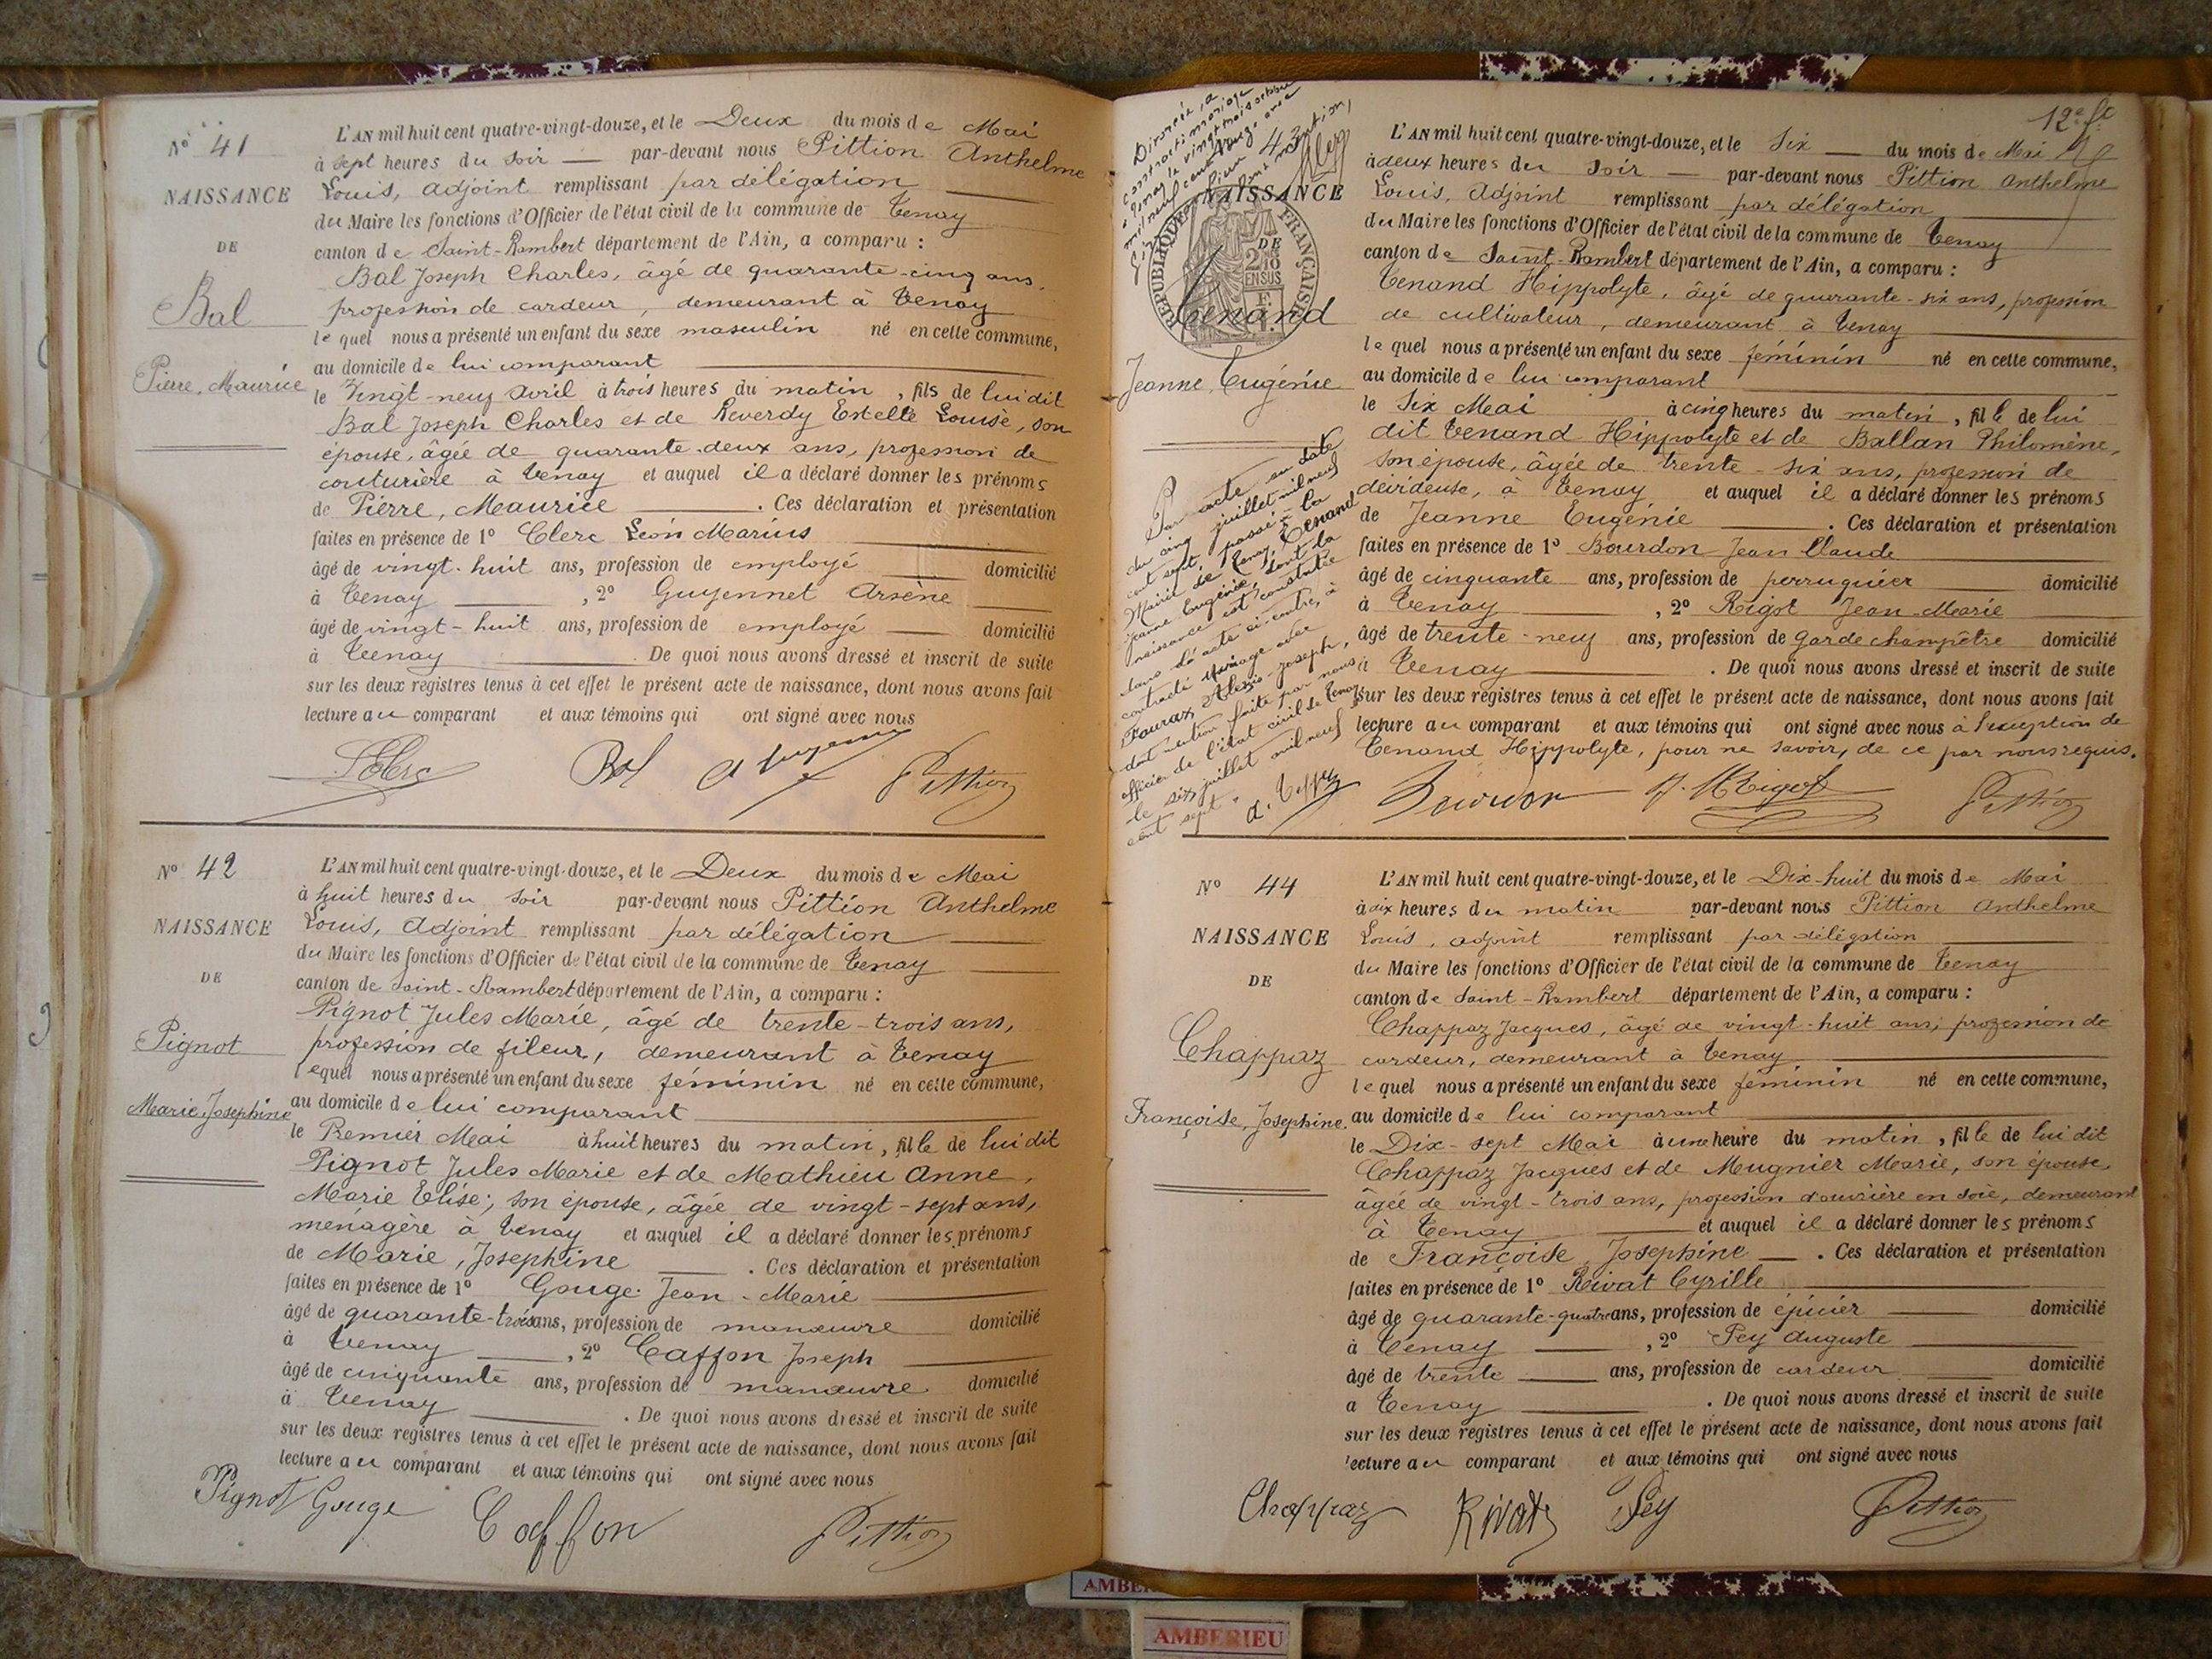 Nº 41
NAISSANCE
DE
Bal
Pierre, Maurice
L'AN mil huit cent quatre-vingt-douze, et le Deux du mois de Mai
à sept heures du soir — par-devant nous Pittion Anthelme
Louis, adjoint remplissant par délégation
du Maire les fonctions d'Officier de l'état civil de la commune de Tenay
canton de Saint-Rambert département de l'Ain, a comparu :
Bal Joseph Charles, âgé de quarante-cinq ans,
profession de cardeur, demeurant à Tenay
lequel nous a présenté un enfant du sexe masculin né en cette commune,
au domicile de lui comparant
le Vingt-neuf Avril à trois heures du matin, fils de lui dit
Bal Joseph Charles et de Reverdy Estelle Louise, son
épouse, âgée de quarante-deux ans, profession de
couturière à Tenay et auquel il a déclaré donner les prénoms
de Pierre, Maurice — . Ces déclaration et présentation
faites en présence de 1º Clerc Léon Marius
âgé de vingt-huit ans, profession de employé — domicilié
à Tenay — , 2º Guyennet Arsène
âgé de vingt-huit ans, profession de employé — domicilié
à Tenay — . De quoi nous avons dressé et inscrit de suite
sur les deux registres tenus à cet effet le présent acte de naissance, dont nous avons fait
lecture au comparant et aux témoins qui ont signé avec nous
LClerc Bal A Guyennet Pittion
Nº 42
NAISSANCE
DE
Pignot
Marie, Josephine
L'AN mil huit cent quatre-vingt-douze, et le Deux du mois de Mai
à huit heures du soir par-devant nous Pittion Anthelme
Louis, adjoint remplissant par délégation
du Maire les fonctions d'Officier de l'état civil de la commune de Tenay
canton de Saint-Rambert département de l'Ain, a comparu :
Pignot Jules Marie, âgé de trente-trois ans,
profession de fileur, demeurant à Tenay
lequel nous a présenté un enfant du sexe féminin né en cette commune,
au domicile de lui comparant
le Premier Mai à huit heures du matin, fille de lui dit
Pignot Jules Marie et de Mathieu Anne,
Marie Elise, son épouse, âgée de vingt-sept ans,
ménagère à Tenay et auquel il a déclaré donner les prénoms
de Marie, Josephine — . Ces déclaration et présentation
faites en présence de 1º Gouge Jean-Marie
âgé de quarante-trois ans, profession de manœuvre domicilié
à Tenay — , 2º Caffon Joseph
âgé de cinquante ans, profession de manœuvre domicilié
à Tenay — . De quoi nous avons dressé et inscrit de suite
sur les deux registres tenus à cet effet le présent acte de naissance, dont nous avons fait
lecture au comparant et aux témoins qui ont signé avec nous
Pignot Gouge Caffon Pittion
12e ft
Divorcée, a
contracté mariage
à Tenay le vingt
mil neuf cent avec
43
NAISSANCE
DE
RÉPUBLIQUE FRANÇAISE
2/10 EN SUS
Tenand
Jeanne, Eugénie
Par acte en date
du cinq juillet mil neuf
cent sept, passé à la
Mairie de Tenay, Tenand
Jeanne Eugénie, dont la
naissance est constatée
dans l'acte ci-contre, a
contracté mariage avec
Faurax Alexis-Joseph,
dont mention faite par nous
officier de l'état civil de Tenay
le six juillet mil neuf
cent sept.
L'AN mil huit cent quatre-vingt-douze, et le Six — du mois de Mai
à deux heures du soir — par-devant nous Pittion Anthelme
Louis, adjoint remplissant par délégation
du Maire les fonctions d'Officier de l'état civil de la commune de Tenay
canton de Saint-Rambert département de l'Ain, a comparu :
Tenand Hippolyte, âgé de quarante-six ans, profession
de cultivateur, demeurant à Tenay
lequel nous a présenté un enfant du sexe féminin né en cette commune,
au domicile de lui comparant
le Six Mai à cinq heures du matin, fille de lui
dit Tenand Hippolyte et de Ballan Philomène,
son épouse, âgée de trente-six ans, profession de
dévideuse, à Tenay et auquel il a déclaré donner les prénoms
de Jeanne Eugénie — . Ces déclaration et présentation
faites en présence de 1º Bourdon Jean Claude
âgé de cinquante ans, profession de perruquier domicilié
à Tenay — , 2º Rigot Jean-Marie
âgé de trente-neuf ans, profession de garde champêtre domicilié
à Tenay — . De quoi nous avons dressé et inscrit de suite
sur les deux registres tenus à cet effet le présent acte de naissance, dont nous avons fait
lecture au comparant et aux témoins qui ont signé avec nous à l'exception de
Tenand Hippolyte, pour ne savoir, de ce par nous requis.
Bourdon J. M Rigot Pittion
Nº 44
NAISSANCE
DE
Chappaz
Françoise, Josephine
L'AN mil huit cent quatre-vingt-douze, et le Dix-huit du mois de Mai
à dix heures du matin par-devant nous Pittion Anthelme
Louis, adjoint remplissant par délégation
du Maire les fonctions d'Officier de l'état civil de la commune de Tenay
canton de Saint-Rambert département de l'Ain, a comparu :
Chappaz Jacques, âgé de vingt-huit ans, profession de
cardeur, demeurant à Tenay
lequel nous a présenté un enfant du sexe féminin né en cette commune,
au domicile de lui comparant
le Dix-sept Mai à une heure du matin, fille de lui dit
Chappaz Jacques et de Mugnier Marie, son épouse,
âgée de vingt-trois ans, profession d'ouvrière en soie, demeurant
à Tenay — et auquel il a déclaré donner les prénoms
de Françoise, Josephine — . Ces déclaration et présentation
faites en présence de 1º Rivat Cyrille
âgé de quarante-quatre ans, profession de épicier — domicilié
à Tenay — , 2º Pey Auguste
âgé de trente — ans, profession de cardeur domicilié
à Tenay — . De quoi nous avons dressé et inscrit de suite
sur les deux registres tenus à cet effet le présent acte de naissance, dont nous avons fait
lecture au comparant et aux témoins qui ont signé avec nous
Chappaz Rivat Pey Pittion
AMBE
AMBERIEU